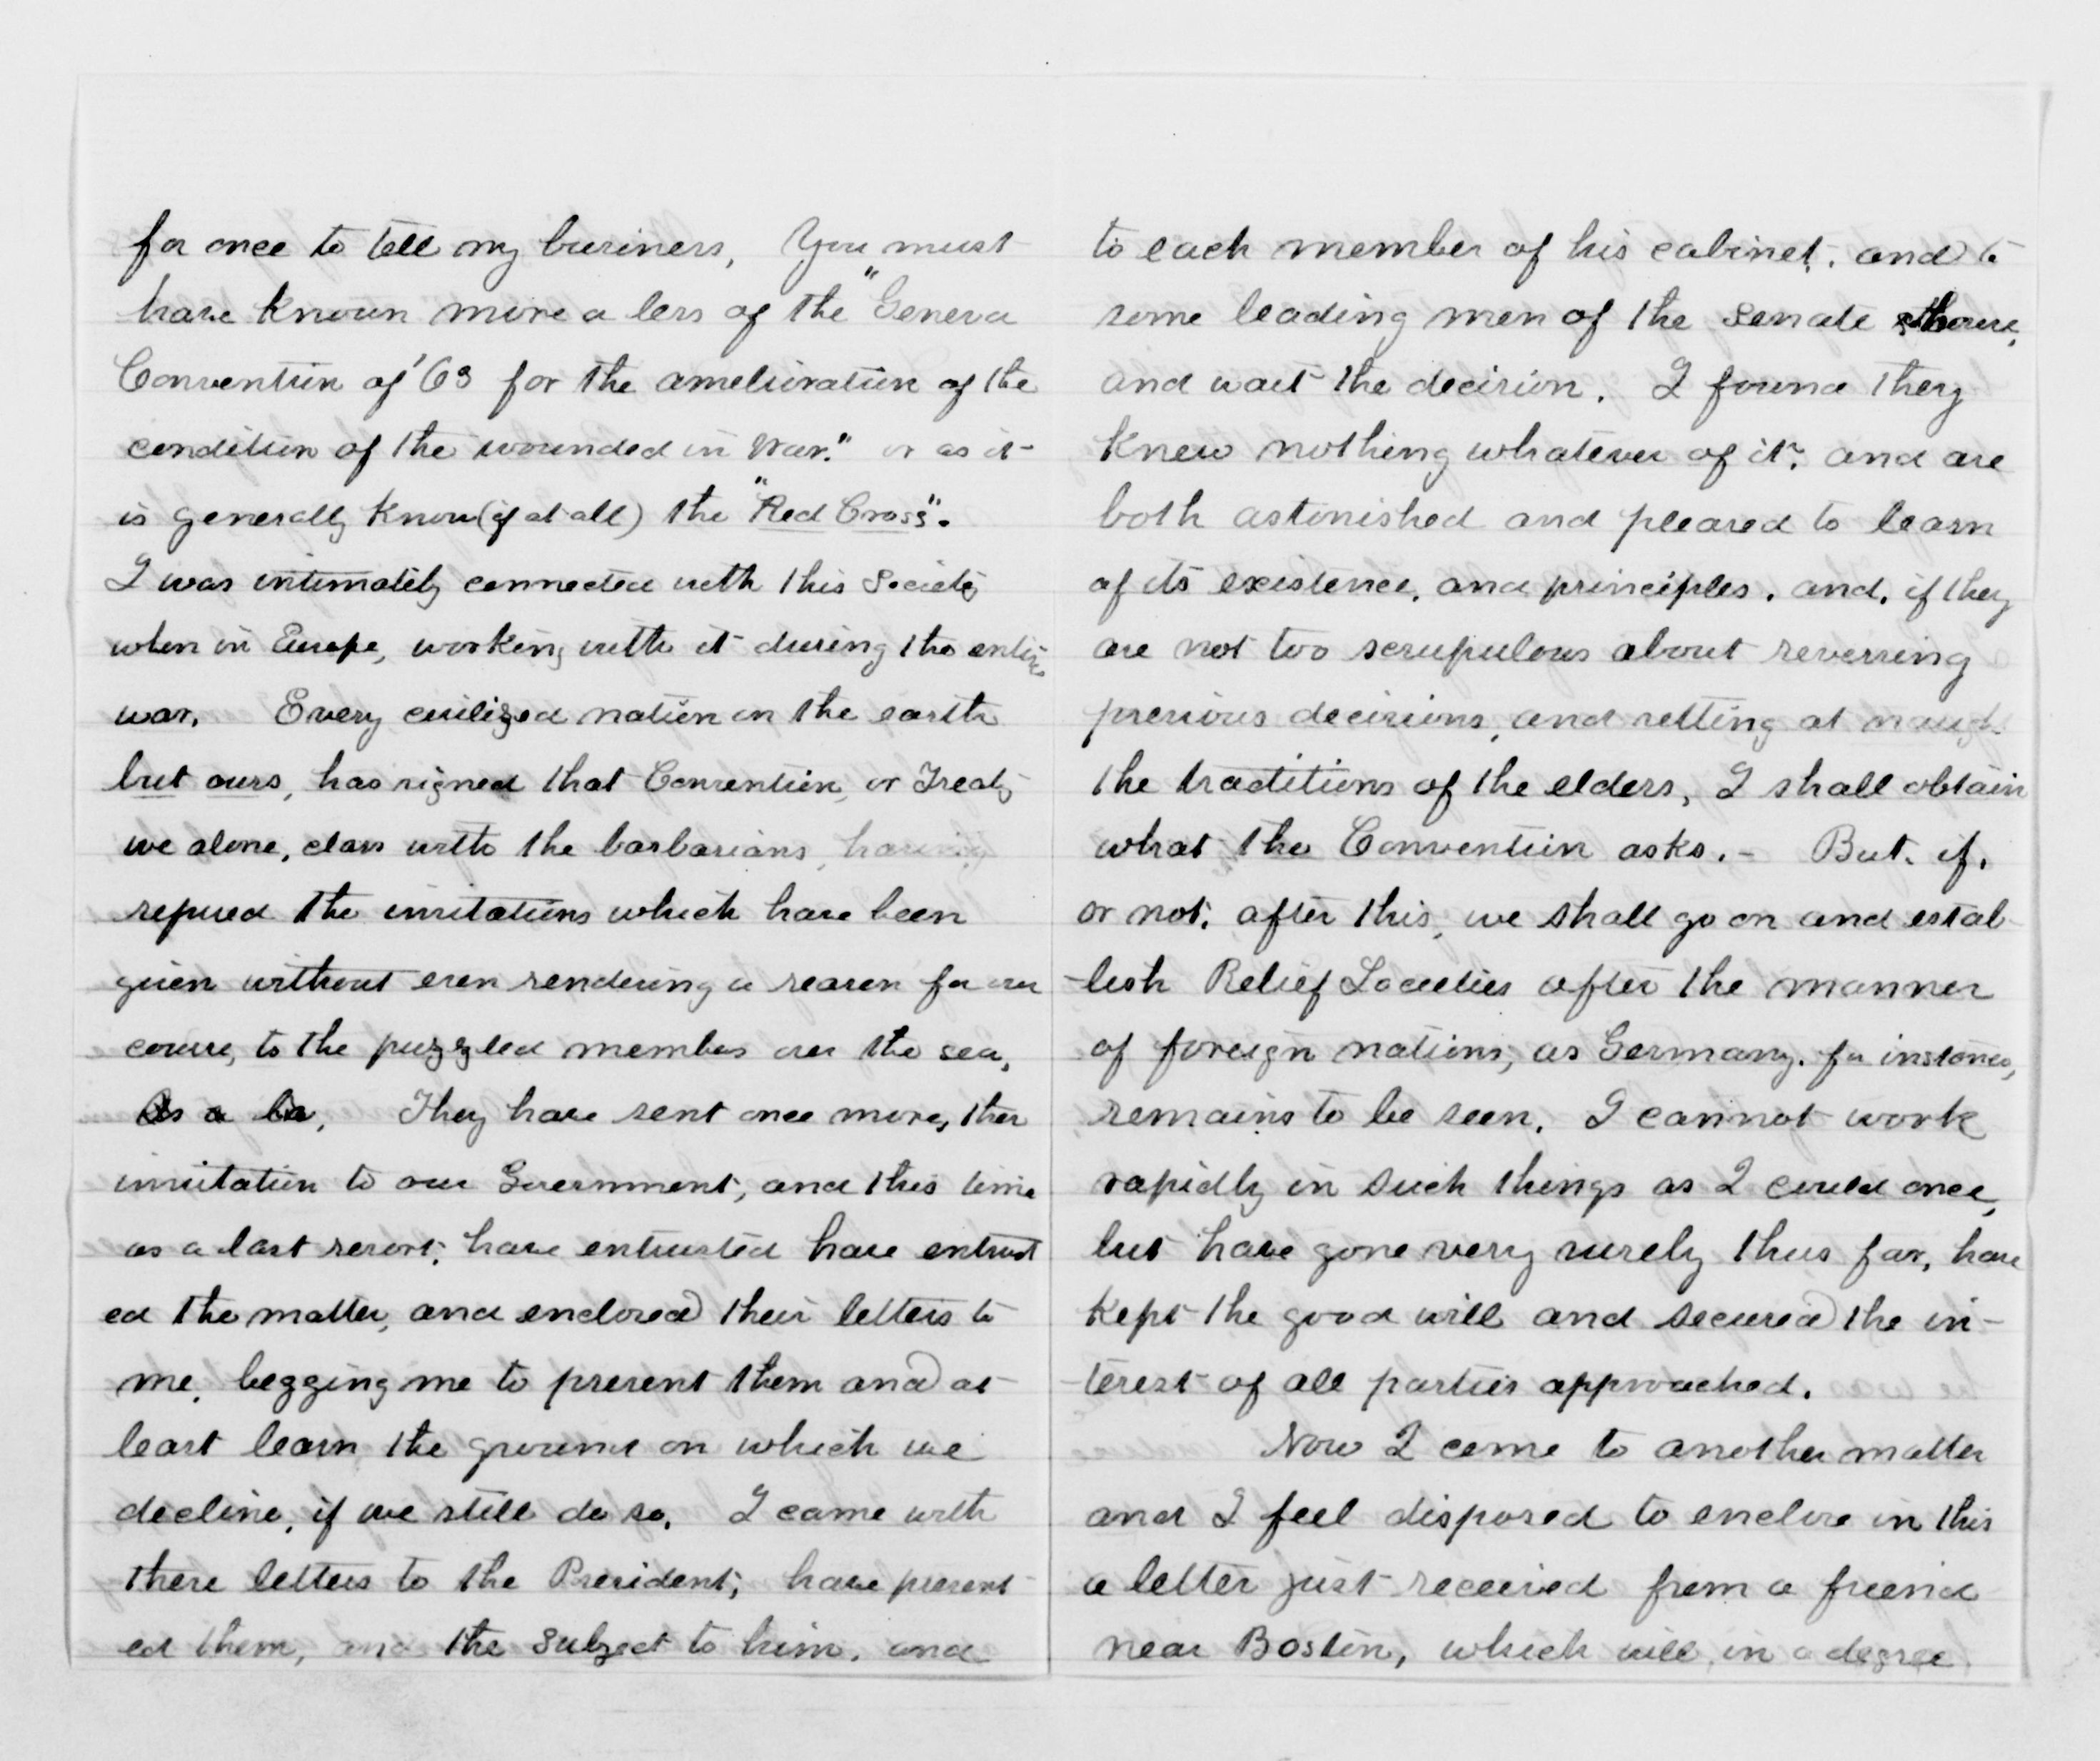 for once to tell my business, You must
have known more or less of the "Geneva
Convention of '63 for the amelioration of the
condition of the wounded in War." or as it
is generally know (if at all) the "Red Cross".
I was intimately connected with this Society
when in Europe, working with it during the entire
war. Every civilized nation on the earth
but ours, has signed that Convention, or Treaty
we alone, class with the barbarians, having
refused the invitations which have been
given without even rendering a reason for our
course, to the puzzled members over the sea,
They have sent once more, their
invitation to our Government, and this time
as a last resort, have entrusted have entrust
ed the matter, and enclosed their letters to
me, begging me to present them and at
least learn the ground on which we
decline, if we still do so. I came with
these letters to the President, have present
ed them, and the subject to him, and
to each member of his cabinet, and to
some leading men of the Senate & House,
and wait the decision. I found they
knew nothing whatever of it, and are
both astonished and pleased to learn
of its existence, and principles, and, if they
are not too scrupulous about reversing
previous decisions, and setting at naught
the traditions of the elders, I shall obtain
what the Convention asks. - But, if,
or not, after this, we shall go on and estab
-lish Relief Societies after the manner
of foreign nations, as Germany, for instance,
remains to be seen. I cannot work
rapidly in such things as I could once,
but have gone very surely thus far, have
kept the good will and secured the in-
-terest of all parties approached.
Now I come to another matter
and I feel disposed to enclose in this
a letter just received from a friend
near Boston, which will, in a degree